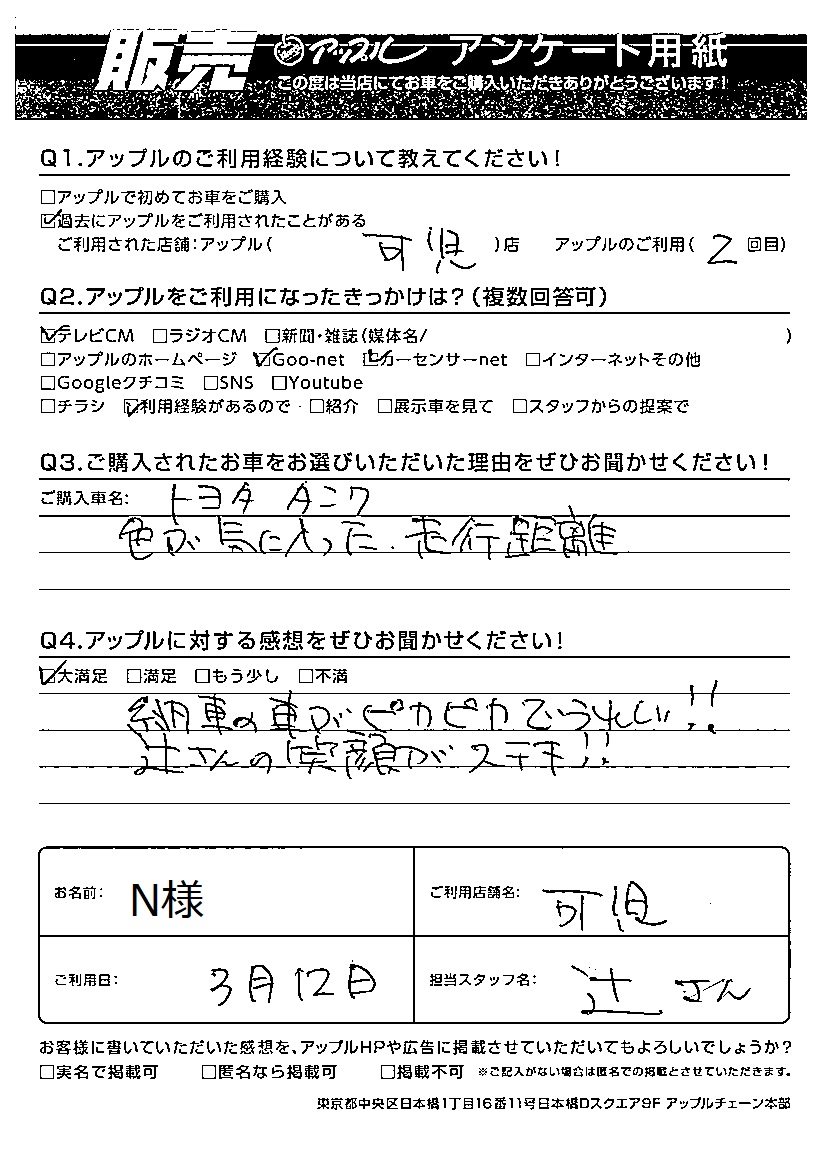 販売 アップル アンケート用紙
この度は当店にてお車をご購入いただきありがとうございます!
Q1.アップルのご利用経験について教えてください!
□アップルで初めてお車をご購入
☑過去にアップルをご利用されたことがある
ご利用された店舗:アップル( 可児 )店 アップルのご利用( 2 回目)
Q2.アップルをご利用になったきっかけは?(複数回答可)
☑テレビCM □ラジオCM □新聞・雑誌(媒体名/ )
□アップルのホームページ ☑Goo-net ☑カーセンサーnet □インターネットその他
□Googleクチコミ □SNS □Youtube
□チラシ ☑利用経験があるので □紹介 □展示車を見て □スタッフからの提案で
Q3.ご購入されたお車をお選びいただいた理由をぜひお聞かせください!
ご購入車名: トヨタ タンク
色が気に入った.走行距離
Q4.アップルに対する感想をぜひお聞かせください!
☑大満足 □満足 □もう少し □不満
納車の車がピカピカでうれしい!!
辻さんの笑顔がステキ!!
お名前: N様 ご利用店舗名: 可児
ご利用日: 3月12日 担当スタッフ名: 辻 さん
お客様に書いていただいた感想を、アップルHPや広告に掲載させていただいてもよろしいでしょうか?
□実名で掲載可 □匿名なら掲載可 □掲載不可 ※ご記入がない場合は匿名での掲載とさせていただきます。
東京都中央区日本橋1丁目16番11号日本橋Dスクエア9F アップルチェーン本部